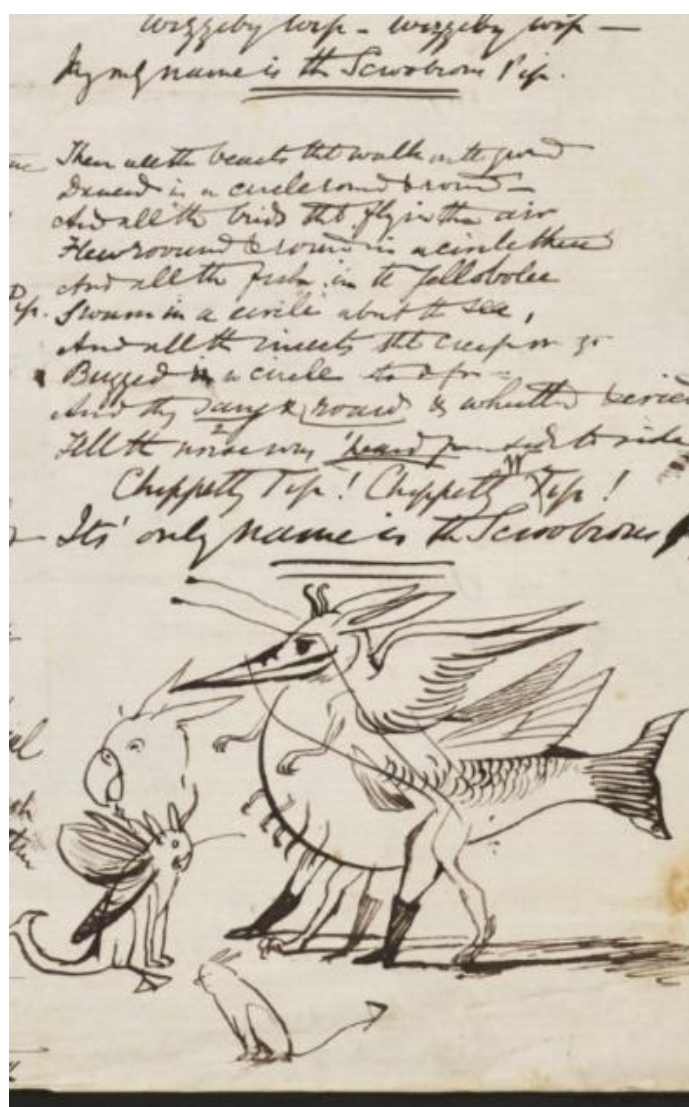 wizzeby wip – wizzeby wip –
My only name is the Scroobious Pip.
Then all the beasts that walk on the ground
Danced in a circle round & round –
And all the birds that fly in the air
Flew round & round in a circle there
And all the fish in the Jellybolee
Swum in a circle about the sea,
And all the insects that creep or go
Buzzed in a circle to & fro –
And they sang & roared & whistled & cried
Till the noise was heard from side to side
Chippetty Tip! Chippetty Tip!
Its' only name is the Scroobious
Pip.